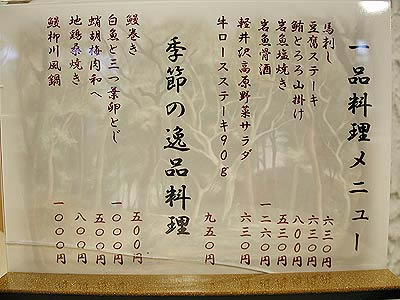 一品料理メニュー
馬刺し 六三〇円
豆腐ステーキ 六三〇円
鮪とろろ山掛け 八〇〇円
岩魚塩焼き 五三〇円
岩魚骨酒 一二六〇円
軽井沢高原野菜サラダ 六三〇円
牛ロースステーキ90g 九五〇円
季節の逸品料理
鰻巻き 五〇〇円
白魚と三つ葉卵とじ 一〇〇〇円
蛸胡梅肉和へ 五〇〇円
地鶏桑焼き 八〇〇円
鰻柳川風鍋 一〇〇〇円